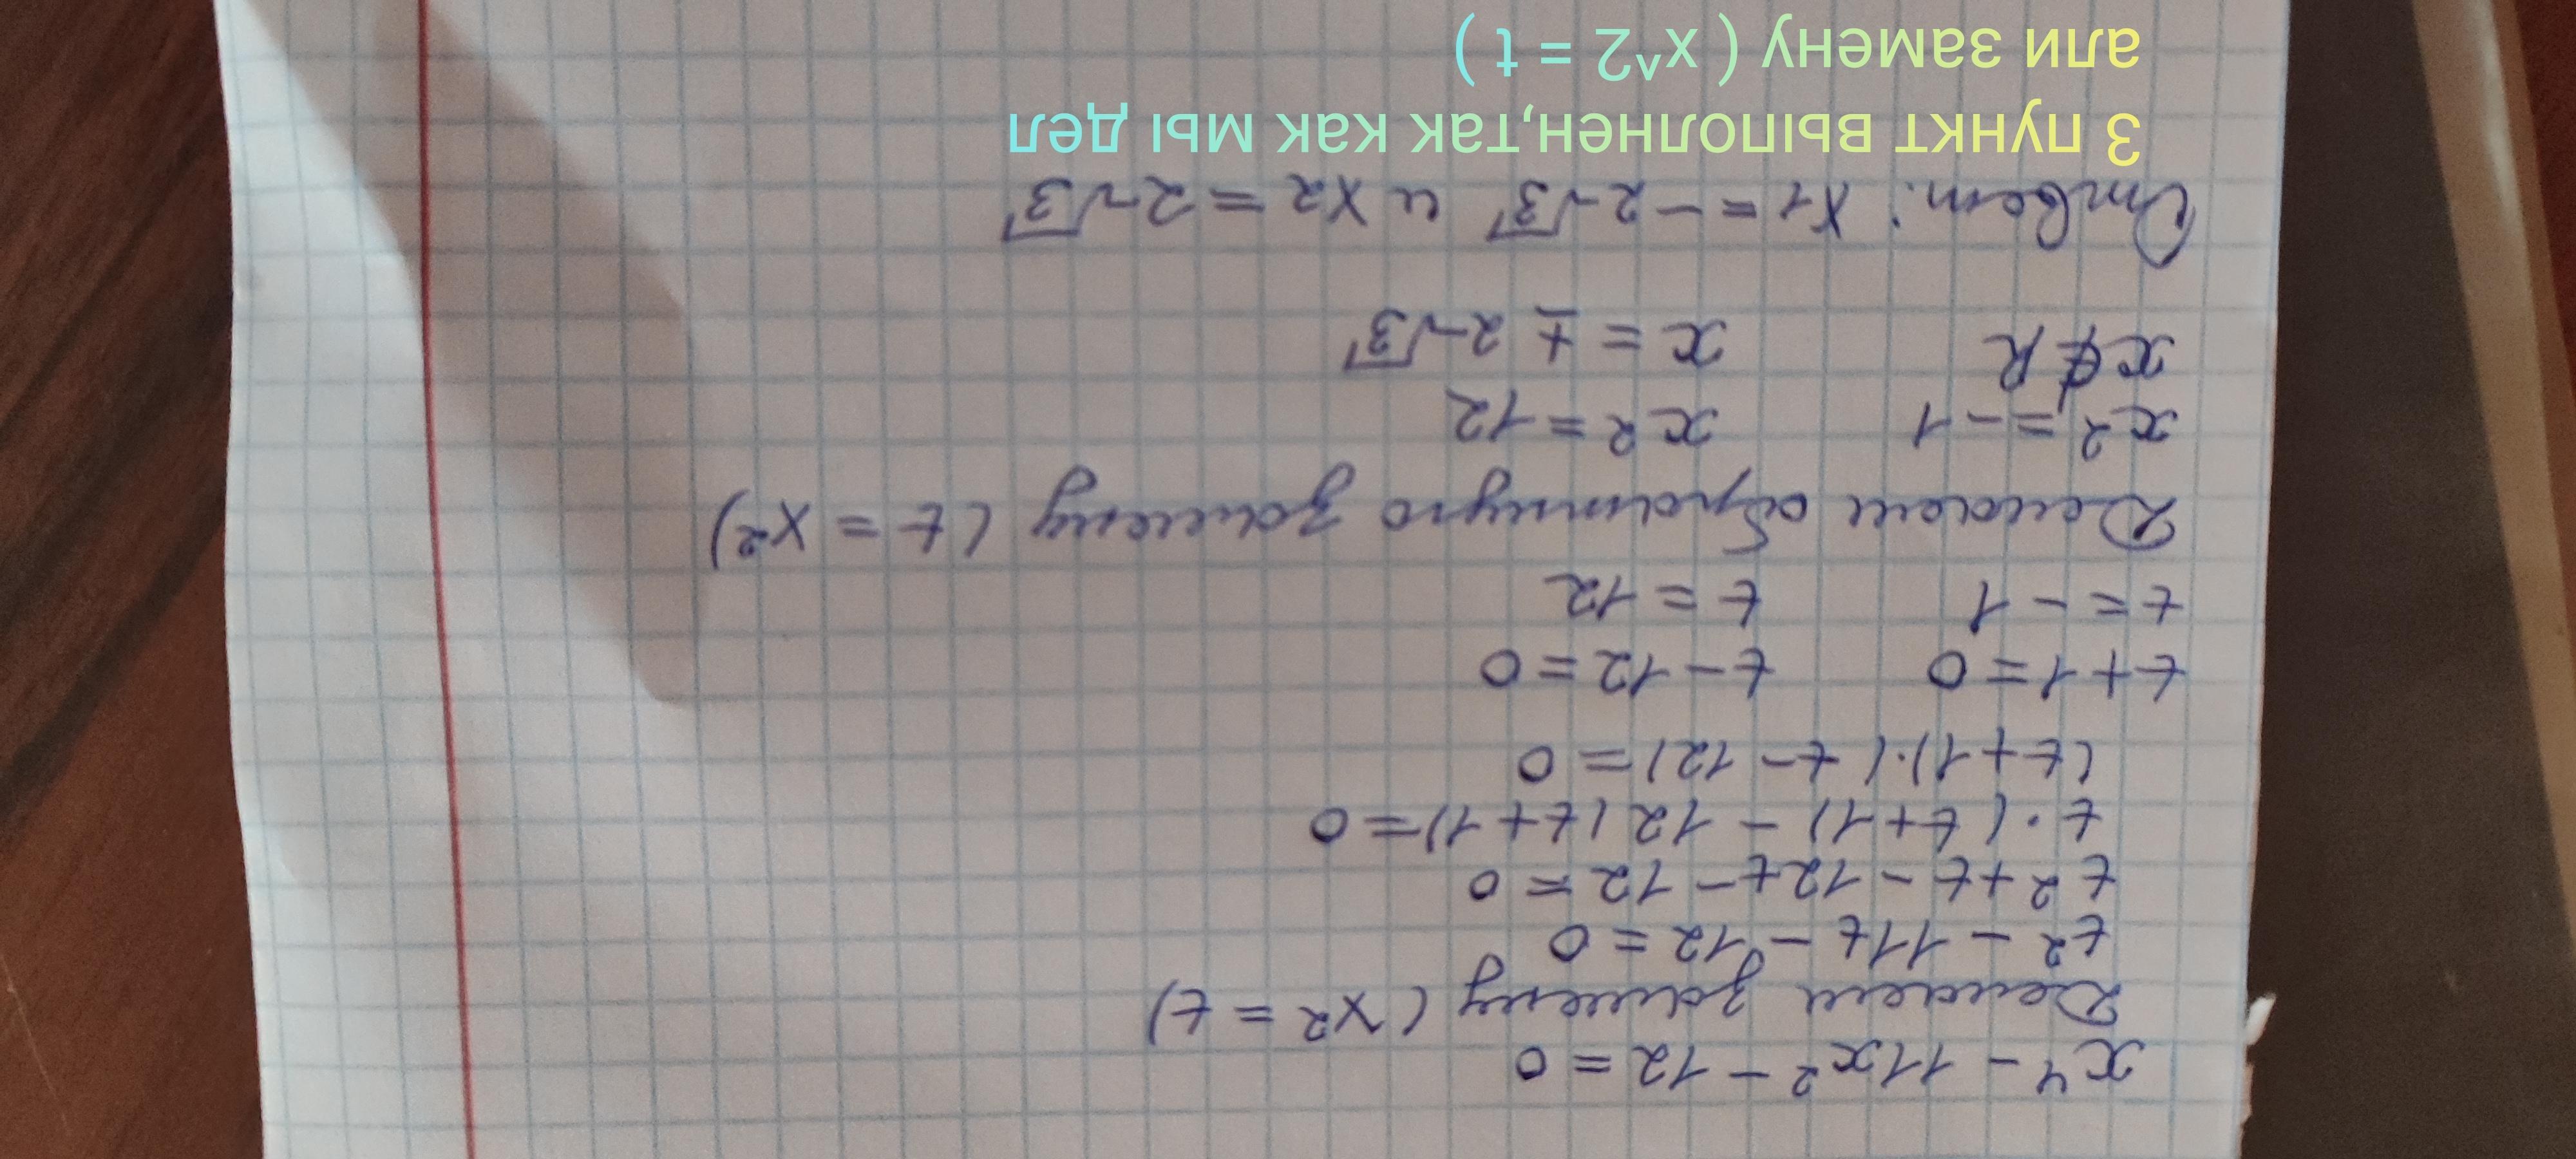 x⁴ - 11x² - 12 = 0
Делаем замену (x² = t)
t² - 11t - 12 = 0
t² + t - 12t - 12 = 0
t · (t + 1) - 12(t + 1) = 0
(t + 1) · (t - 12) = 0
t + 1 = 0 t - 12 = 0
t = -1 t = 12
Делаем обратную замену (t = x²)
x² = -1 x² = 12
x ∉ R x = ± 2√3
Ответ: x1 = -2√3 и x2 = 2√3
3 пункт выполнен,так как мы дел
али замену ( x^2 = t )